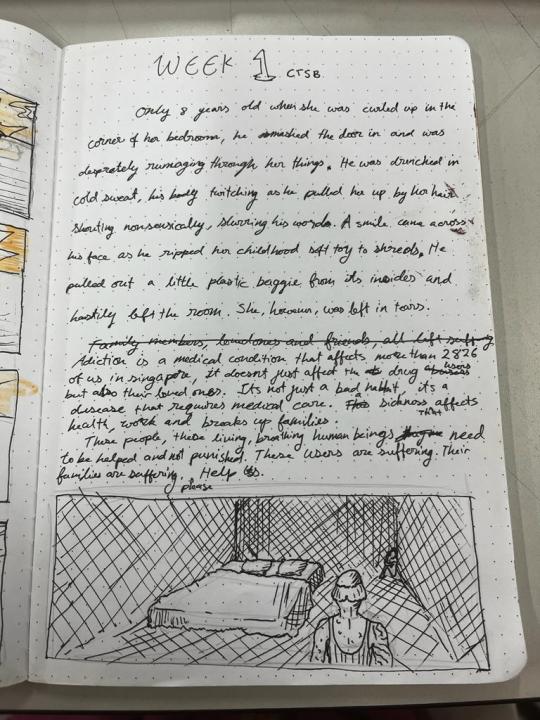 WEEK 1 CTSB
Only 8 years old when she was curled up in the
corner of her bedroom, he smashed the door in and was
desprately rumaging through her things. He was drenched in
cold sweat, his body twitching as he pulled her up by her hair
shouting nonsensically, slurring his words. A smile came across
his face as he ripped her childhood soft toy to shreds. He
pulled out a little plastic baggie from its insides and
hastily left the room. She, however, was left in tears.
Family members, loved ones and friends, all left
Adiction is a medical condition that affects more than 2826
of us in singapore, it doesn't just affect the drug users
but also their loved ones. Its not just a bad habbit, its a
disease that requires medical care. A sickness that affects
health, work and breaks up families.
These people, these living, breathing human beings need
to be helped and not punished. These users are suffering. Their
families are suffering. Help please